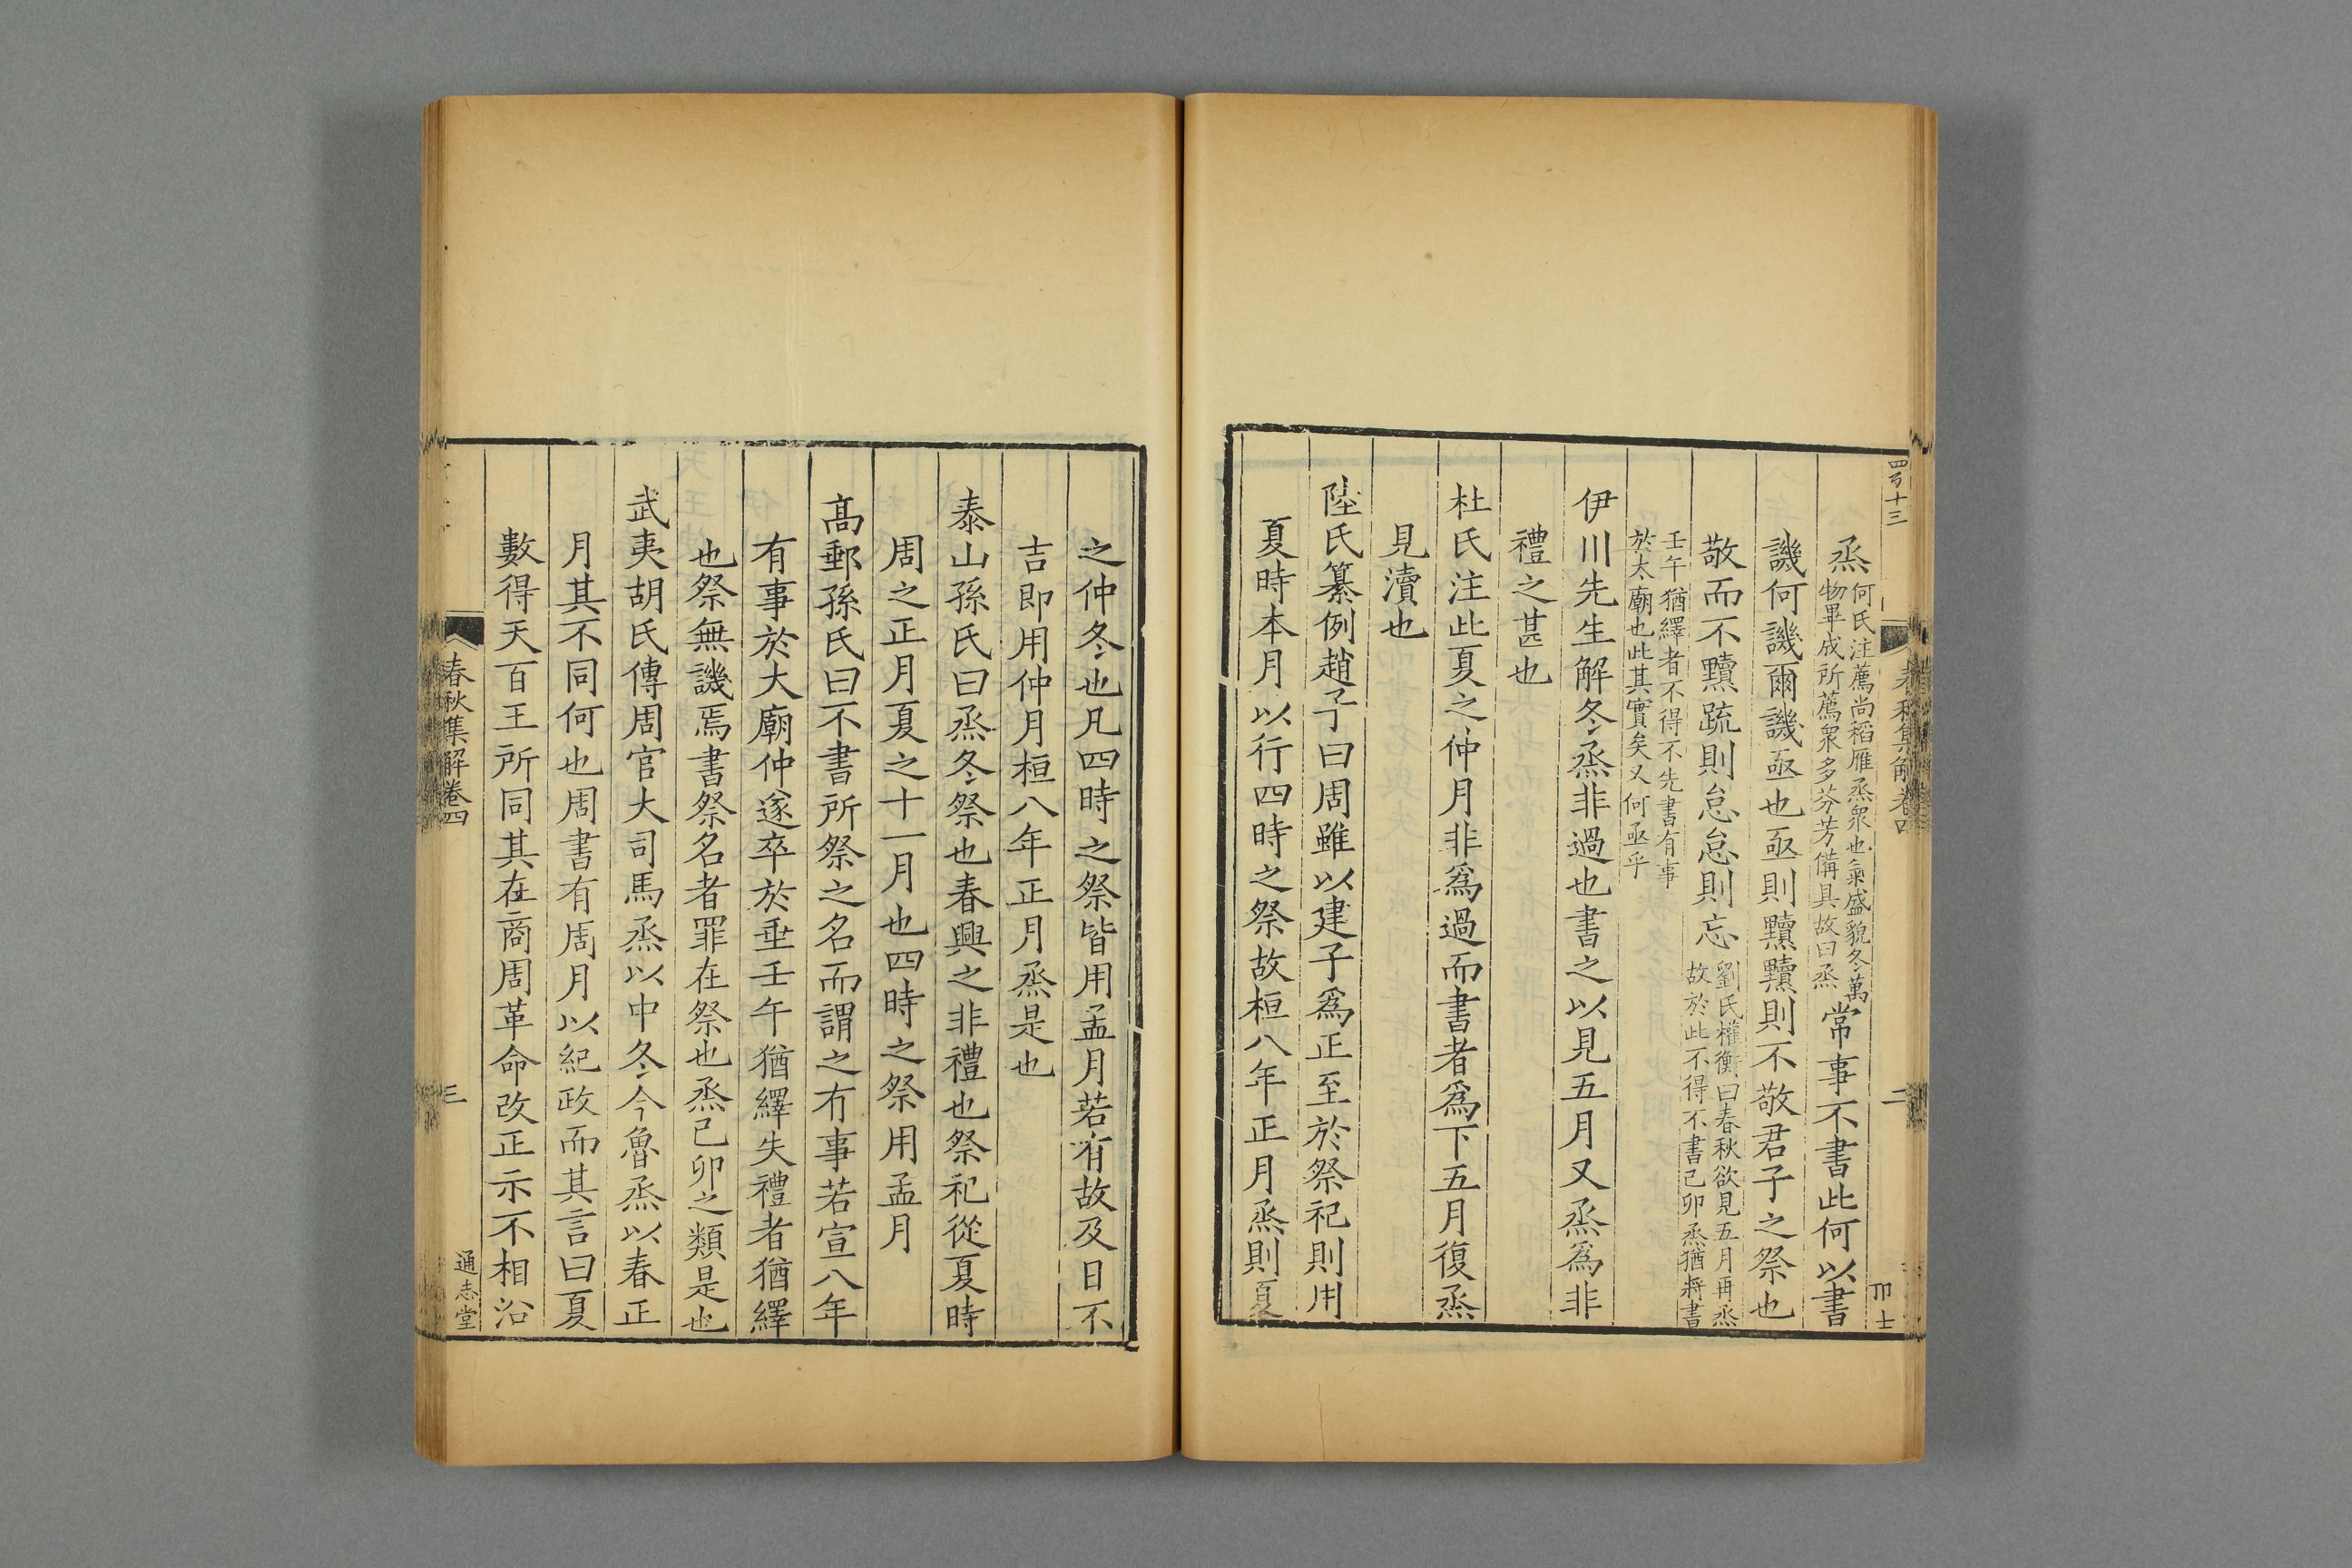 烝何氏注薦尚稻雁烝衆也氣盛貌冬萬物畢成所薦衆多芬芳備具故曰烝常事不書此何以書
譏何譏爾譏亟也亟則黷黷則不敬君子之祭也
敬而不黷疏則怠怠則忘劉氏權衡曰春秋欲見五月再烝故於此不得不書己卯烝猶將書
壬午猶繹者不得不先書有事於太廟也此其實矣又何亟乎
伊川先生解冬烝非過也書之以見五月又烝爲非
禮之甚也
杜氏注此夏之仲月非爲過而書者爲下五月復烝
見瀆也
陸氏纂例趙子曰周雖以建子爲正至於祭祀則用
夏時本月以行四時之祭故桓八年正月烝則夏
之仲冬也凡四時之祭皆用孟月若有故及日不
吉即用仲月桓八年正月烝是也
泰山孫氏曰烝冬祭也春興之非禮也祭祀從夏時
周之正月夏之十一月也四時之祭用孟月
高郵孫氏曰不書所祭之名而謂之有事若宣八年
有事於大廟仲遂卒於垂壬午猶繹失禮者猶繹
也祭無譏焉書祭名者罪在祭也烝己卯之類是也
武夷胡氏傳周官大司馬烝以中冬今魯烝以春正
月其不同何也周書有周月以紀政而其言曰夏
數得天百王所同其在商周革命改正示不相沿
春秋集解卷四
三
通志堂